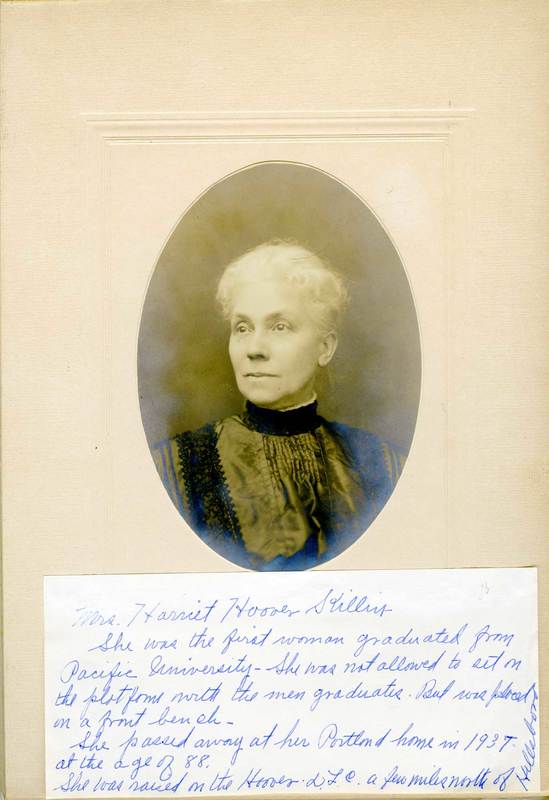 Mrs. Harriet Hoover Killin
She was the first woman graduated from
Pacific University - She was not allowed to sit on
the platform with the men graduates. But was placed
on a front bench -
She passed away at her Portland home in 1937
at the age of 88.
She was raised on the Hoover D.L.C. a few miles north of Hillsboro